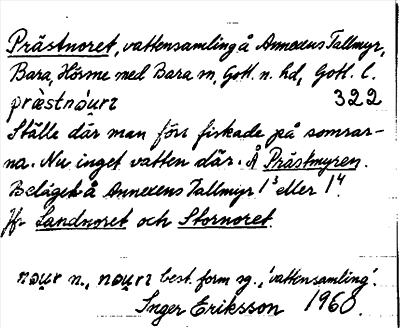 Prästnoret, vattensamling å Annexens Tallmyr,
Bara, Hörsne med Bara sn, Gotl. n. hd, Gotl. l.
præstnǫu̯rı 322
Ställe där man förr fiskade på somrar-
na. Nu inget vatten där. Å Prästmyren.
Beläget å Annexens Tallmyr 1³ eller 1⁴.
Jfr Landnoret och Stornoret.
nǫu̯r n., nǫu̯rı best. form sg., 'vattensamling'.
Inger Eriksson 1960.